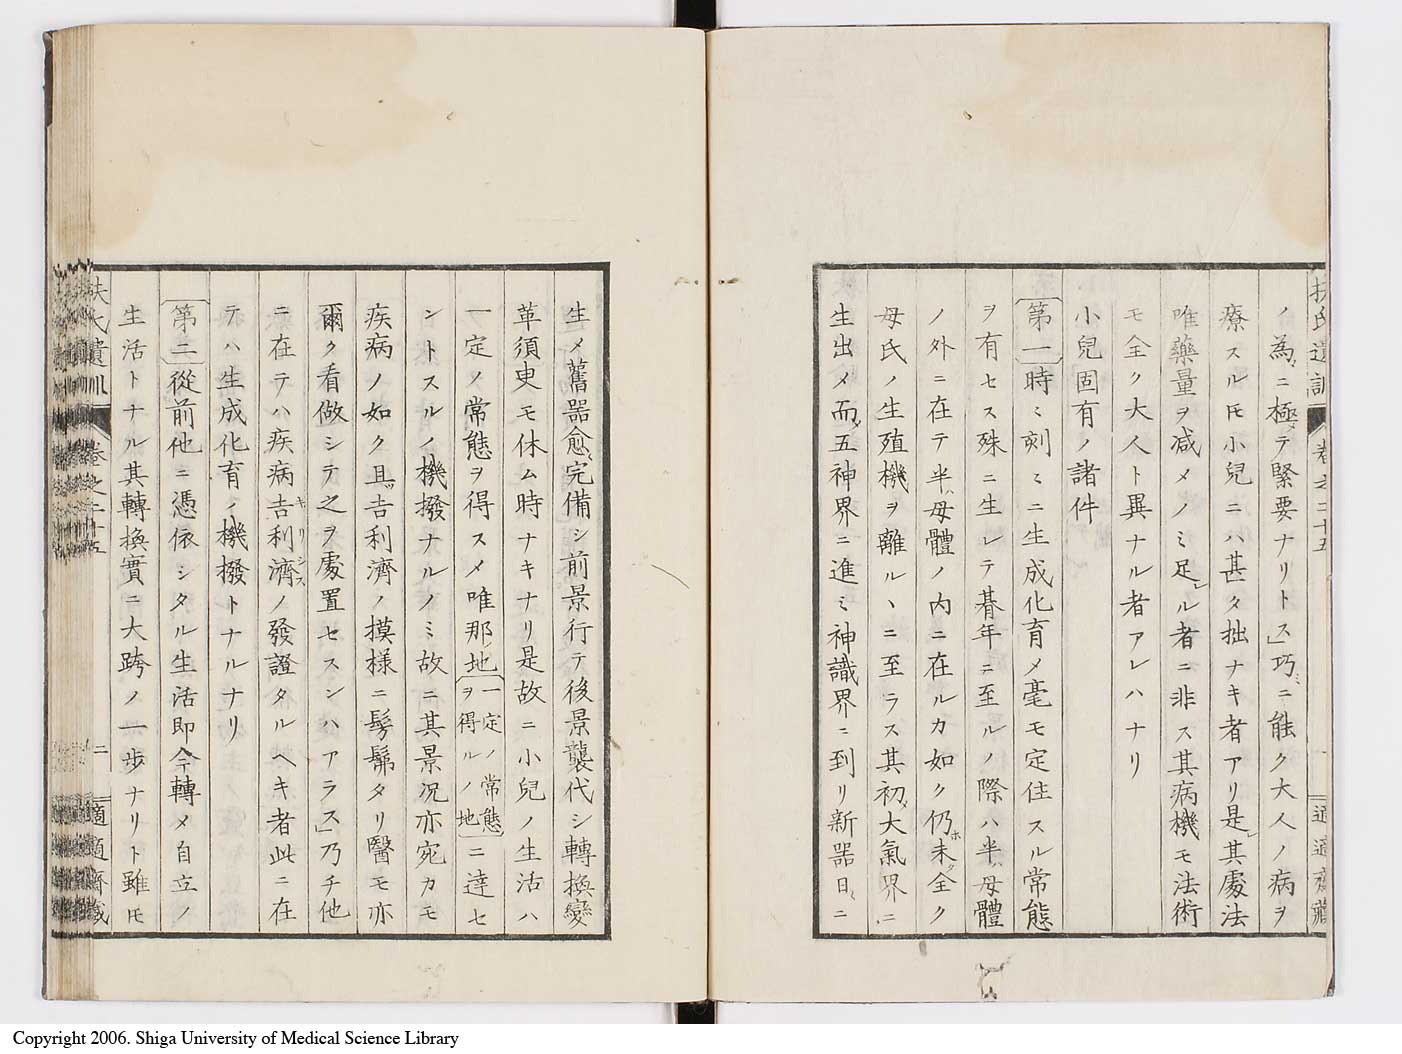 扶氏遺訓 卷之二十五 一 適適齋藏
ノ為ニ極テ緊要ナリトス」巧ミニ能ク大人ノ病ヲ
療スル𪜈小兒ニハ甚タ拙ナキ者アリ是レ其處法
唯藥量ヲ減メノミ足レル者ニ非ス其病機モ法術
モ全ク大人ト異ナル者アレハナリ
小兒固有ノ諸件
第一時ミ刻ミニ生成化育メ毫モ定住スル常態
ヲ有セス殊ニ生レテ朞年ニ至ルノ際ハ半ハ母體
ノ外ニ在テ半ハ母體ノ内ニ在ルカ如ク仍ホ未タ全ク
母氏ノ生殖機ヲ離ルヽニ至ラス其初メ大氣界ニ
生出メ而メ五神界ニ進ミ神識界ニ到リ新器日ニ
生メ舊器愈完備シ前景行テ後景襲代シ轉換變
革須臾モ休ム時ナキナリ是故ニ小兒ノ生活ハ
一定ノ常態ヲ得スメ唯那ノ地一定ノ常態ヲ得ルノ地ニ達セ
ントスルノ機撥ナルノミ故ニ其景況亦宛カモ
疾病ノ如ク且ツ吉利濟ノ摸様ニ髣髴タリ醫モ亦
爾ク看做シテ之ヲ處置セスンハアラス」乃チ他
ニ在テハ疾病吉利濟キリシスノ發證タルヘキ者此ニ在
テハ生成化育ノ機撥トナルナリ
第二從前他ニ憑依シタル生活即今轉メ自立ノ
生活トナル其轉換實ニ大跨ノ一步ナリト雖𪜈
扶氏遺訓 卷之二十五 二 適適齋藏
Copyright 2006. Shiga University of Medical Science Library